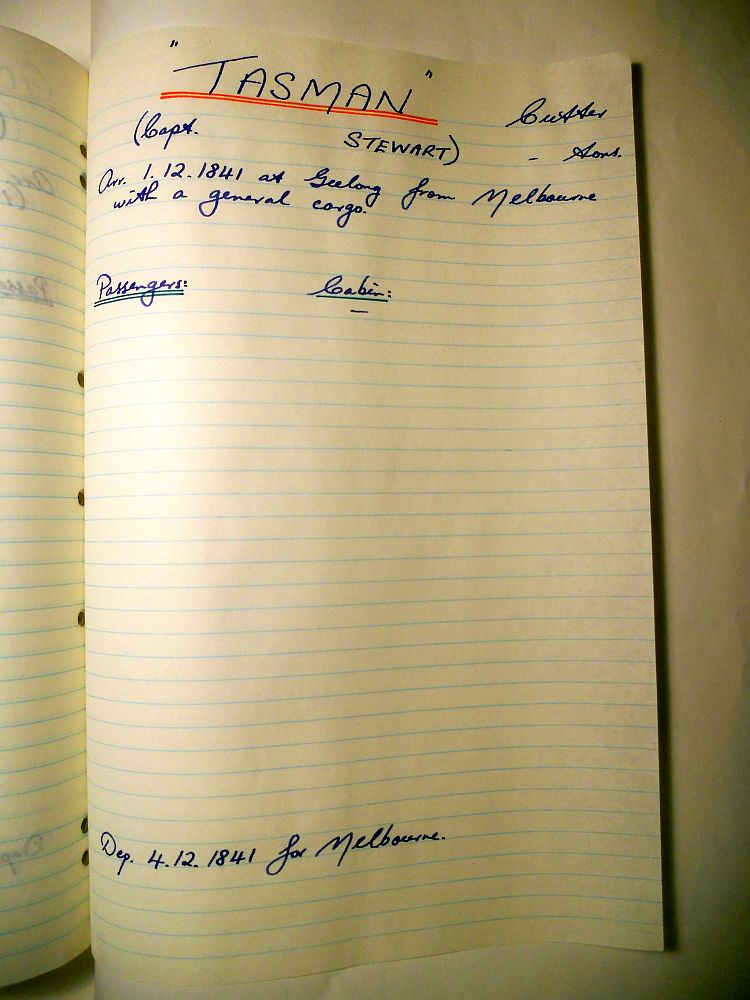 "TASMAN"
Cutter
(Capt. STEWART) - tons.
Arr. 1.12.1841 at Geelong from Melbourne
with a general cargo.
Passengers: Cabin:
—
Dep. 4.12.1841 for Melbourne.